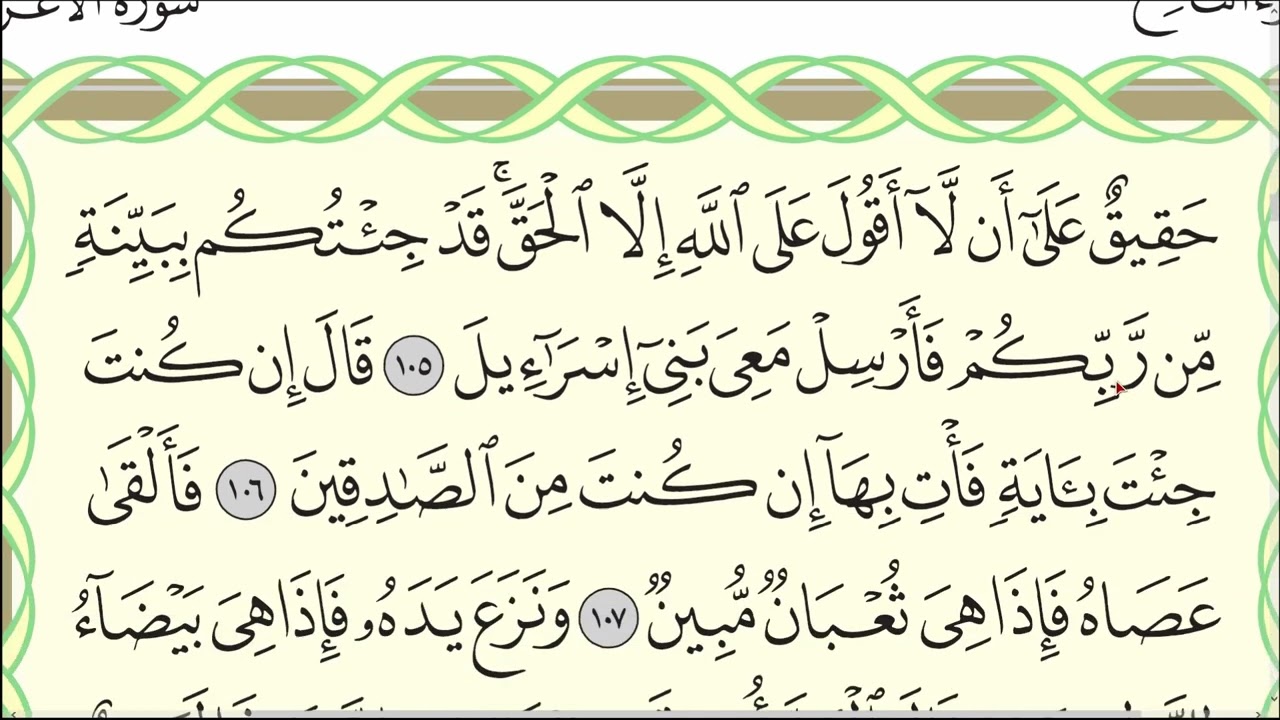 سورة الأعر
حَقِيقٌ عَلَىٰٓ أَن لَّآ أَقُولَ عَلَى ٱللَّهِ إِلَّا ٱلْحَقَّ ۚ قَدْ جِئْتُكُم بِبَيِّنَةٍ
مِّن رَّبِّكُمْ فَأَرْسِلْ مَعِىَ بَنِىٓ إِسْرَٰٓءِيلَ ١٠٥ قَالَ إِن كُنتَ
جِئْتَ بِـَٔايَةٍ فَأْتِ بِهَآ إِن كُنتَ مِنَ ٱلصَّـٰدِقِينَ ١٠٦ فَأَلْقَىٰ
عَصَاهُ فَإِذَا هِىَ ثُعْبَانٌ مُّبِينٌ ١٠٧ وَنَزَعَ يَدَهُۥ فَإِذَا هِىَ بَيْضَآءُ